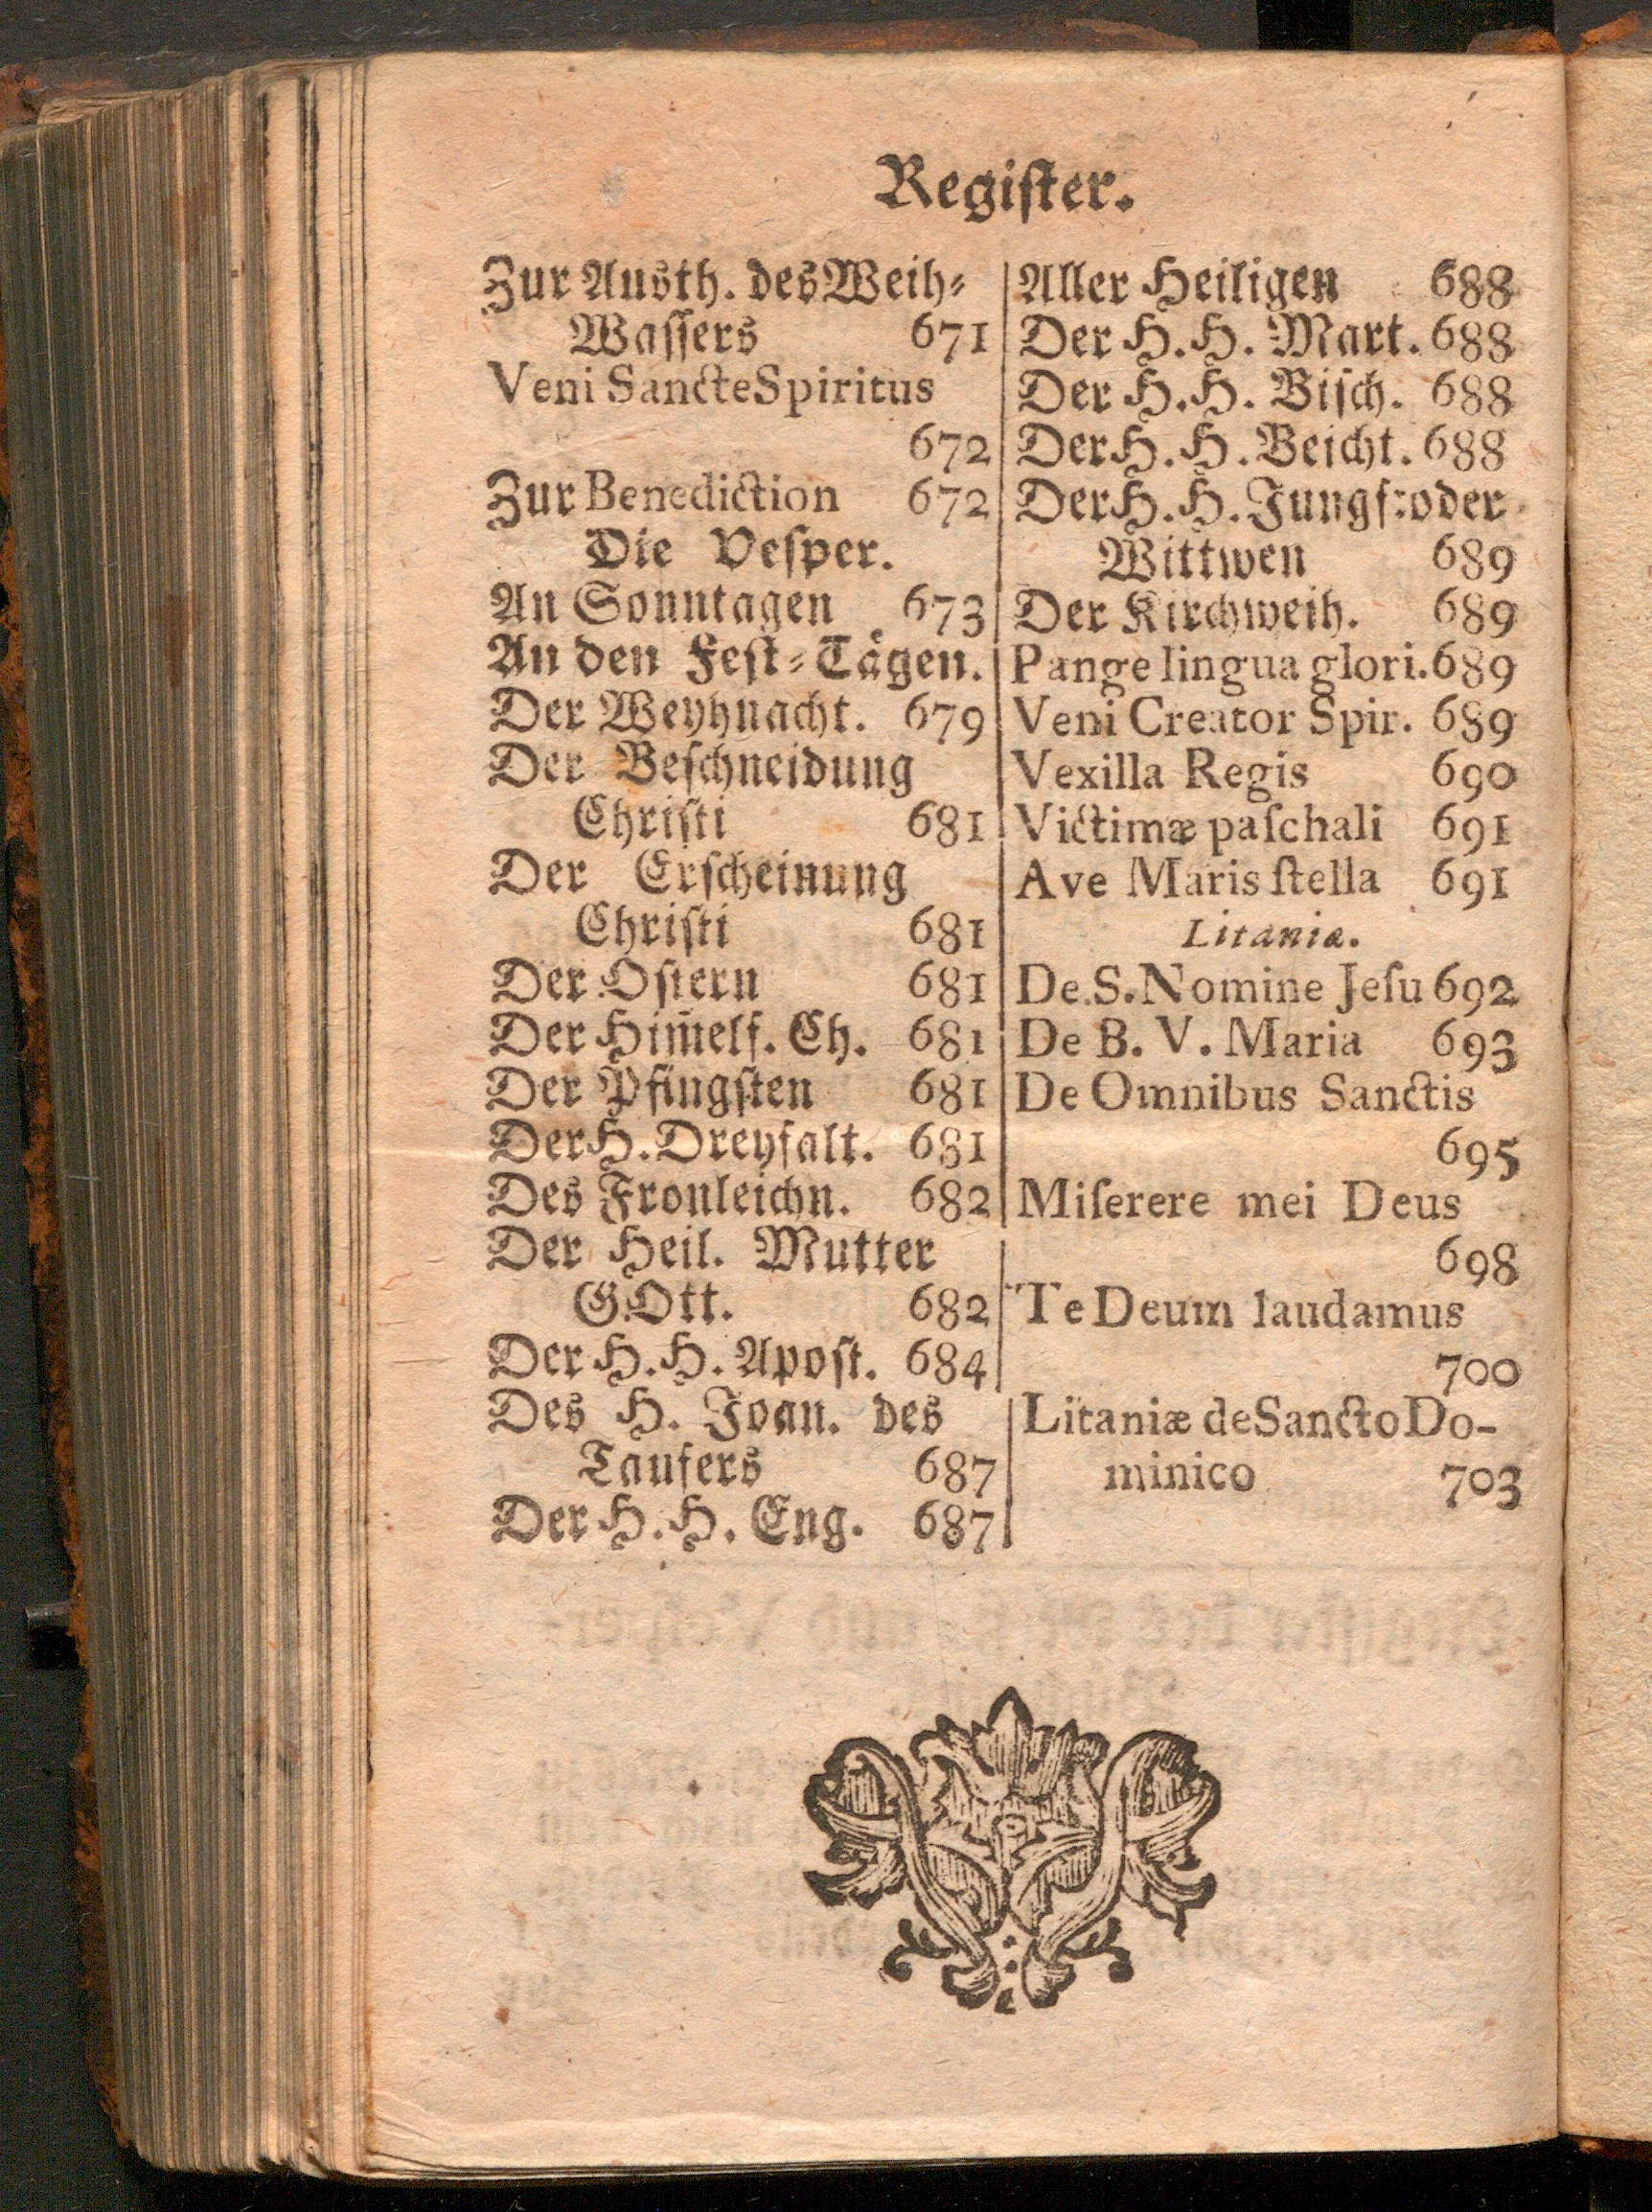 Regiſter.
Zur Austh. des Weih⸗
Waſſers 671
Veni Sancte Spiritus
672
Zur Benediction 672
Die Veſper.
An Sonntagen 673
An den Feſt⸗Tägen.
Der Weyhnacht. 679
Der Beſchneidung
Chriſti 681
Der Erſcheinung
Chriſti 681
Der Oſtern 681
Der Him̃elf. Ch. 681
Der Pfingſten 681
Der H. Dreyfalt. 681
Des Fronleichn. 682
Der Heil. Mutter
GOtt. 682
Der H. H. Apoſt. 684
Des H. Joan. des
Taufers 687
Der H. H. Eng. 687
Aller Heiligen 688
Der H. H. Mart. 688
Der H. H. Biſch. 688
Der H. H. Beicht. 688
Der H. H. Jungf: oder
Wittwen 689
Der Kirchweih. 689
Pange lingua glori. 689
Veni Creator Spir. 689
Vexilla Regis 690
Victimæ paſchali 691
Ave Maris ſtella 691
Litaniæ.
De S. Nomine Jeſu 692
De B. V. Maria 693
De Omnibus Sanctis
695
Miſerere mei Deus
698
Te Deum laudamus
700
Litaniæ de Sancto Do-
minico 703